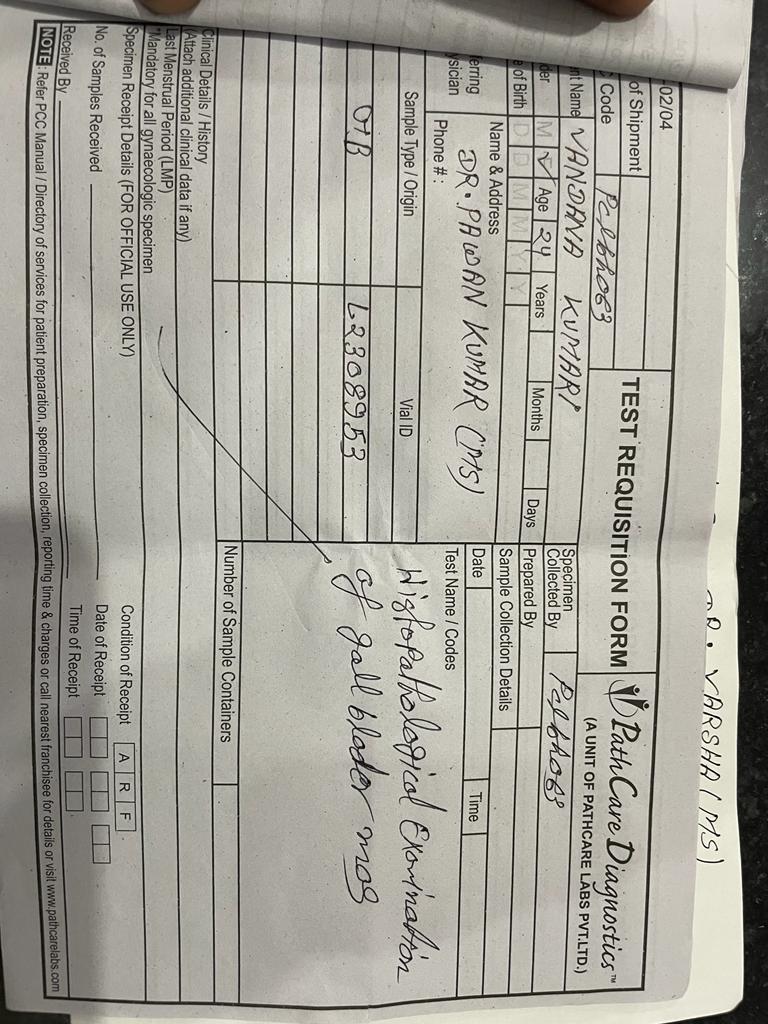 DR. VARSHA (MS)
-02/04
TEST REQUISITION FORM
PathCare Diagnostics™
(A UNIT OF PATHCARE LABS PVT.LTD.)
of Shipment
Code
nt Name VANDANA KUMARI
der M Age 24 Years Months Days
e of Birth D D M M Y Y
Specimen
Collected By
Prepared By
Sample Collection Details
Date
Time
erring
ysician
Name & Address
DR. PAWAN KUMAR (MS)
Phone #:
Sample Type / Origin
Vial ID
L2308953
Test Name / Codes
Histopathological Examination
of gall blader
Number of Sample Containers
Clinical Details / History
(Attach additional clinical data if any)
Last Menstrual Period (LMP)
*Mandatory for all gynaecologic specimen
Specimen Receipt Details (FOR OFFICIAL USE ONLY)
Condition of Receipt A R F
No. of Samples Received
Date of Receipt
Received By
Time of Receipt
NOTE: Refer PCC Manual / Directory of services for patient preparation, specimen collection, reporting time & charges or call nearest franchisee for details or visit www.pathcarelabs.com